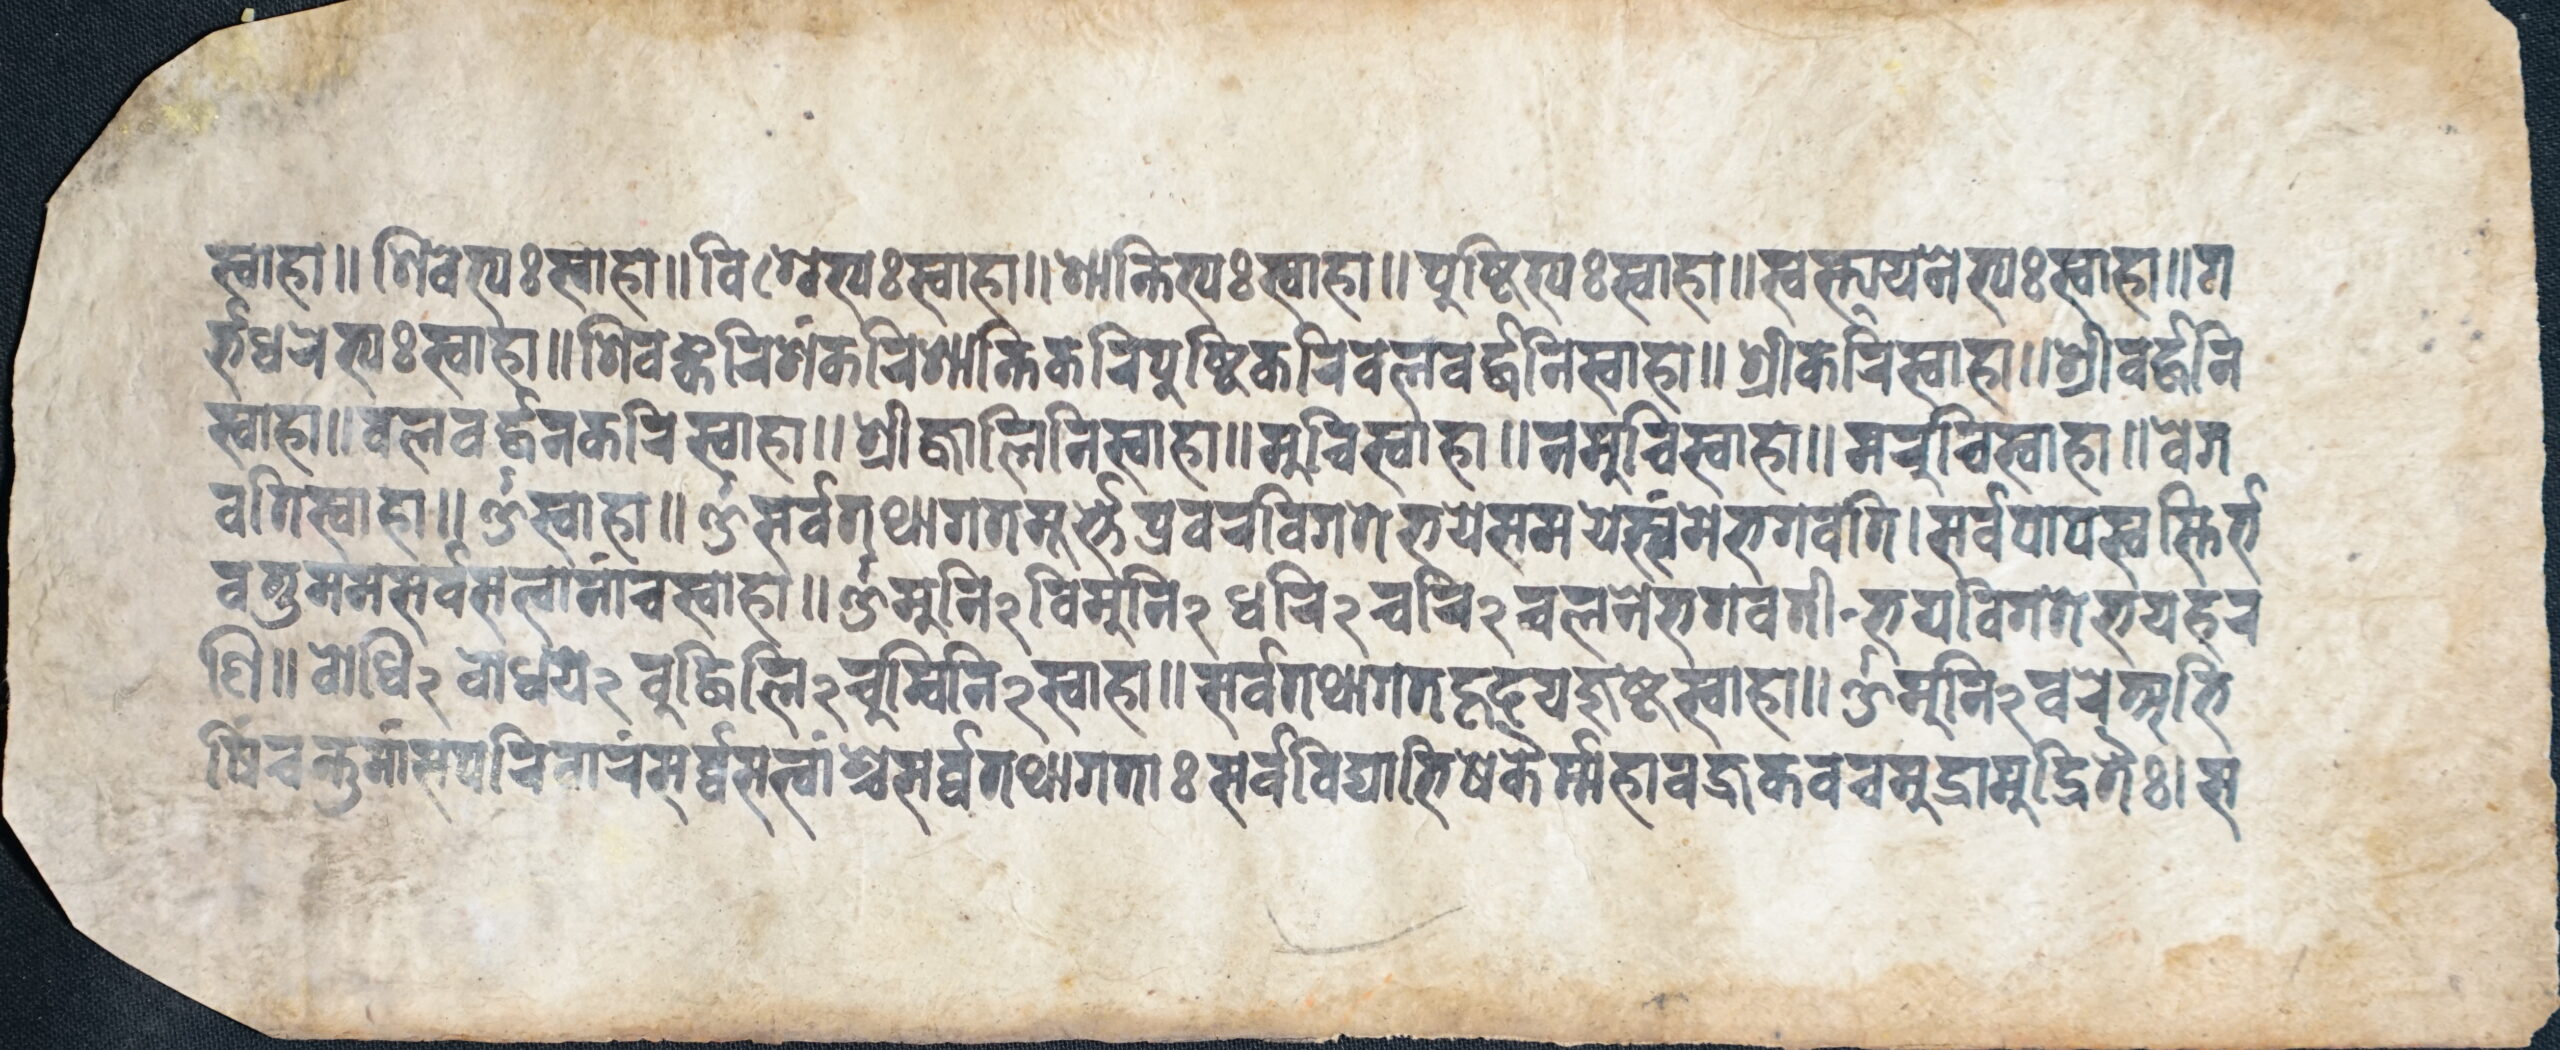 स्वाहा॥ शिवेभ्यः स्वाहा॥ विश्वेभ्यः स्वाहा॥ शान्तिभ्यः स्वाहा॥ पुष्टिभ्यः स्वाहा॥ स्वस्त्ययनेभ्यः स्वाहा॥ ग
र्भधरेभ्यः स्वाहा॥ शिवङ्करिशंकरिशान्तिकरिपुष्टिकरिवलवर्द्धनिस्वाहा॥ श्रीकरिस्वाहा॥ श्रीवर्द्धनि
स्वाहा॥ वलवर्द्धनकरिस्वाहा॥ श्रीज्वालिनिस्वाहा॥ मुचिस्वाहा॥ नमुचिस्वाहा॥ मरुचिस्वाहा॥ वेग
वतिस्वाहा॥ ॐस्वाहा॥ ॐसर्वतथागतमूर्त्तेप्रवरविगतेभयेसमयेस्वंमेभगवति। सर्वपापस्वस्तिर्भ
वन्तुममसर्वसत्वानांचस्वाहा॥ ॐमुनि२ विमुनि२ धरि२ चरि२ चलनेभगवतीभयविगतेभयहर
णि॥ वोधि२ वोधये२ वुद्धिलि२ चुम्विनि२ स्वाहा॥ सर्वतथागतहृदयजुष्टस्वाहा॥ ॐमुनि२ वरेअभि
षिंचन्तुमांसपरिवारंसर्व्वसत्वांश्चसर्व्वतथागताः सर्वविद्याभिषेकैर्म्महावज्रकवचमुद्रामुद्रितैः। स